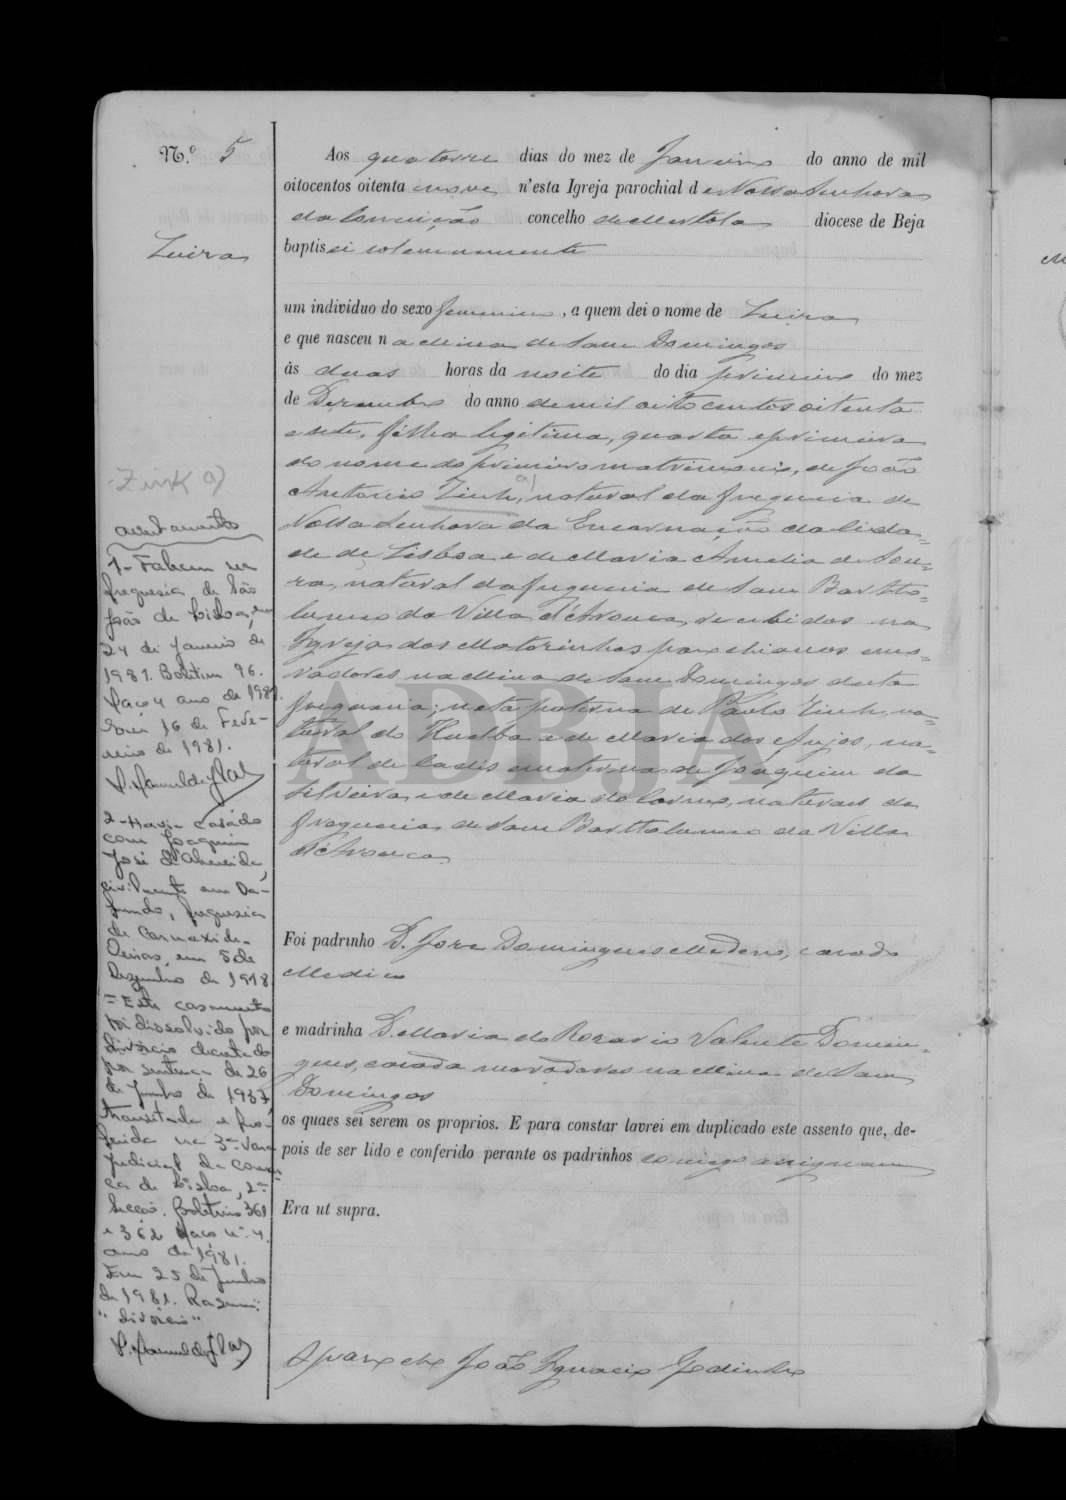 N.º 5
Luiza
Aos quatorze dias do mez de Janeiro do anno de mil
oitocentos oitenta e nove n'esta Igreja parochial de Nossa Senhora
da Conceição concelho de Mertola diocese de Beja
baptisei solemnemente
um individuo do sexo femenino, a quem dei o nome de Luiza
e que nasceu na Mina de Sam Domingos
ás duas horas da noite do dia primeiro do mez
de Dezembro do anno de mil oito centos oitenta
e sete, filha legitima, quarta e primeira
do nome do primeiro matrimonio, de João
Antonio Zink, a) natural da freguesia de
Nossa Senhora da Encarnação da Cida=
de de Lisboa e de Maria Amelia de Sou=
za, natural da freguesia de Sam Bartho=
lomeu da Villa d'Arouca, recebidos na
Igreja dos Matorinhos parochianos e mo=
radores na Mina de Sam Domingos desta
freguesia; neta paterna de Paulo Zink, na=
tural de Huelba e de Maria dos Anjos, na=
tural de Cadis e materna de Joaquim da
Silveira e de Maria do Carmo, naturaes da
freguesia de Sam Bartholomeu da Villa
d'Arouca
Foi padrinho D. Jose Domingues Madeno, casado
Medico
e madrinha D. Maria do Rozario Valente Domin=
gues, casada moradores na Mina de Sam
Domingos
os quaes sei serem os proprios. E para constar lavrei em duplicado este assento que, de-
pois de ser lido e conferido perante os padrinhos comigo assignaram
Era ut supra.
O parocho João Ignacio Godinho
Zink a)
averbamentos
1- Faleceu na
freguesia de São
João de Lisboa, em
24 de Janeiro de
1981. Boletim 96.
Maço 4 ano de 1981.
Em 16 de Feve-
reiro de 1981.
2- Havia casado
com Joaquim
José de Almeida,
civilmente em Da-
fundo, freguesia
de Carnaxide-
Oeiras, em 5 de
Dezembro de 1918
= Este casamento
foi dissolvido por
divórcio decretado
por sentença de 26
de Junho de 1937,
transitada e pro-
ferida na 3ª Vara
Judicial da Comar-
ca de Lisboa, 2ª
Secção. Boletins 361
e 362 Maço nº 4.
ano de 1981.
Em 25 de Junho
de 1981. Rasurei:
"divórcio"
ADBJA